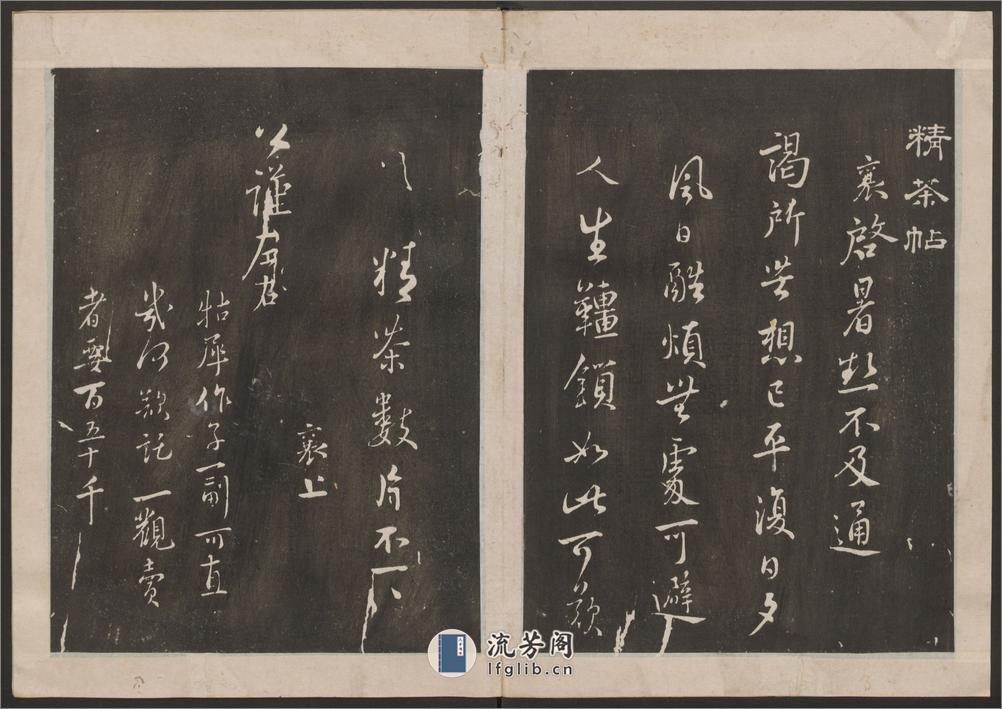 精茶帖
襄啓暑熱不及通
謁所苦想已平復日夕
風日酷煩無處可避
人生韁鎖如此可歎
精茶數片不一一
襄上
公謹左右
牯犀作子一副可直
幾何欲託一觀賣
者要百五十千
流芳阁
lfglib.cn